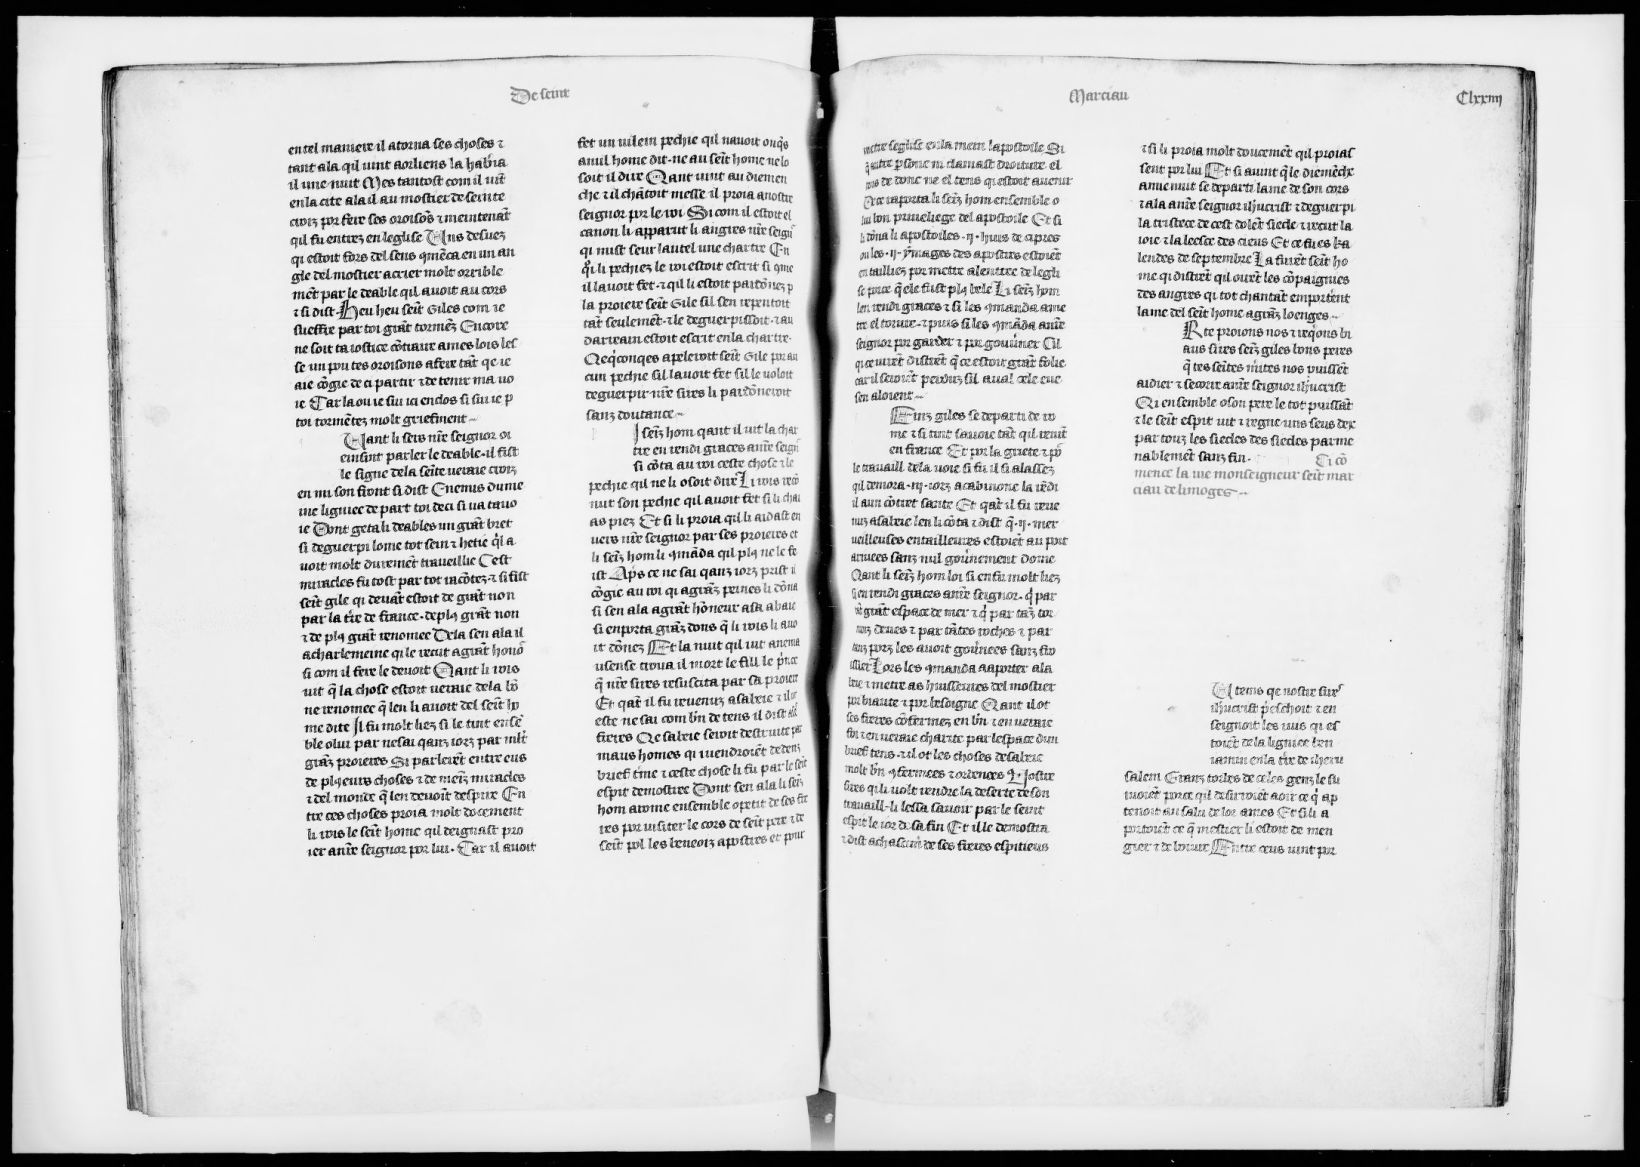 De seint
en tel maniere il atorna ses choses ⁊
tant ala qil uint aorliens la habria
il une nuit Mes tantost com il uit
en la cite ala il au mostier de seinte
croiz por fere ses oroisõs ⁊ meintenãt
qil fu entrez en leglise Uns desuez
qi estoit fors del sens ꝯmẽca en un an
gle del mostier acrier molt orrible
mẽt par le deable qil auoit au cors
⁊ si dist · Heu heu seĩt Giles com ie
sueffre par toi grãt tormẽz Encore
ne soit ta iostice cõtraire ames lois les
se un pou tes oroisons afere tãt qe ie
aie cõgie de ci partir ⁊ de tenir ma uo
ie Car la ou ie sui ia enclos si sui ie p
toi tormẽtez molt griefment
Qant li sers nr̃e seignor oi
einsint parler le deable · il fist
le signe dela seĩte ueraie croiz
en mi son front si dist Enemis dume
ine ligniee de part toi deci si ua ta uo
ie Dont geta li deables un grãt bret
si deguerpi lome tot sein ⁊ hetié qi a
uoit molt duremẽt traueillie Cest
miracles fu tost par tot racõtez · ⁊ si fist
seĩt gile qi deuãt estoit de grãt non
par la tr̃e de france · de plꝰ grãt non
⁊ de plꝰ grãt renomee Dela sen ala il
acharlemeine qi le recut agrãt honõ
si com il fere le deuoit Qant li rois
uit q̃ la chose estoit ueraie dela bõ
ne renomee q̃ len li auoit del seĩt ho
me dite Il fu molt liez si le tint ensẽ
ble olui par ne sai qanz iorz par mlt̃
grãz proieres Si parlerẽt entre eus
de plꝰeurs choses ⁊ de meĩz miracles
⁊ del monde q̃ len deuoit despire En
tre ces choses proia molt docement
li rois le seĩt home qil deignast pro
ier anr̃e seignor por lui · Car il auoit
fet un uilein pechie qil nauoit onqs
anul home dit · ne au seĩt home ne lo
soit il dire Qant uint au diemen
che ⁊ il chãtoit messe il proia anostre
seignor por le roi Si com il estoit el
canon li apparut li angres nr̃e seign̄
qi mist seur lautel une chartre En
qi li pechiez le roi estoit escrit si ꝯme
il lauoit fet · ⁊ qil li estoit pardõnez p
la proiere seĩt Gile sil sen repentoit
tãt seulemẽt · ⁊ le deguerpissoit · ⁊ au
darreain estoit escrit en la chartre ·
Qeqconqes apeleroit seĩt Gile por au
cun pechie sil lauoit fet sil le uoloit
deguerpir · nr̃e sires li pardõneroit
sanz doutance
I seĩz hom qant il uit la char
tre en rendi graces anr̃e seign̄
si cõta au roi ceste chose ⁊ le
pechie qil ne li osoit dire Li rois reco
nut son pechie qil auoit fet si li chai
as piez Et si li proia qil li aidast en
uers nr̃e seignor par ses proieres et
li seĩz hom li ꝯmãda qil plꝰ ne le fe
ist Aps ce ne sai qanz iorz prist il
cõgie au roi qi agrãz peines li dõna
si sen ala agrãt hõneur asa abaie
si enporta grãz dons q̃ li rois li auo
it dõnez Et la nuit qil iut anema
usense troua il mort le fill le p̃nce
q̃ nr̃e sires resuscita par sa proiere
Et qãt il fu reuenuz asabeie ⁊ il ot
este ne sai com bĩn de tens il dist as
freres Qe sabeie seroit destruite par
maus homes qi uendroiẽt dedenz
brief tme ⁊ ceste chose li fu par le seĩt
esprit demostree Dont sen ala li seĩz
hom arome ensemble opetit de ses fre
res por uisiter le cors de seĩt pere ⁊ de
seĩt pol les beneoiz apostres et pour
Marciau
Clxxiiij
metre seglise en la mein lapostoile Si
q̃ autre psone ni clamast droiture el
tens de donc ne el tens qi estoit auenir
Dece raporta li seĩz hom ensemble o
lui bon priueliege del apostoile Et si
li dõna li apostoiles · ij · huis de cipres
ou les · ij · ymages des apostres estoiẽt
entailliez por metre alentree de legli
se porce q̃ ele fust plꝰ bele Li seĩz hom
len rendi graces ⁊ si les ꝯmanda ame
tre el toiure · ⁊ puis si les ꝯmãda anr̃e
seignor por garder ⁊ por gouerner Cil
qi ce uirẽt distrẽt q̃ ce estoit grãt folie
car il seroiẽt perduz sil aual cele eue
sen aloient
Einz giles se departi de ro
me ⁊ si tint sauoie tãt qil reuĩt
en france Et por la griete ⁊ por
le trauaill dela uoie si fu il si alassez
qil demora · iij · iorz acabinone la rẽdi
il aun cõtret sante Et qãt il fu reue
nuz asabeie len li cõta ⁊ dist q̃ · ij · mer
ueilleuses entailleures estoiẽt au port
ariuees sanz nul gouernement dome
Qant li seĩz hom loi si en fu molt liez
si en rendi graces anr̃e seignor · q̃ par
si grãt espace de mer ⁊ q̃ par tãz tor
noiz deues ⁊ par tãtes roches ⁊ par
tanz porz les auoit gouernees sanz fro
issier Lors les ꝯmanda aaporter ala
beie ⁊ metre as huisseries del mostier
por biaute ⁊ por besoigne Qant il ot
ses freres cõfermez en bĩn ⁊ en ueraie
foi ⁊ en ueraie charite par lespace dun
brief tens · ⁊ il ot les choses desabeie
molt bĩn ꝯfermees ⁊ ordenees Li iostre
sires qi li uolt rendre la deserte de son
trauaill · li lessa sauoir par le seint
esprit le ior de sa fin Et il le demostra
⁊ dist achascun de ses freres espitieus
⁊ si li proia molt doucemẽt qil proiast
sent por lui Et si auint q̃ le diemẽche
amie nuit se departi lame de son cors
⁊ ala anr̃e seignor ihucrist ⁊ deguerpi
la tristece de cest dolẽt siecle ⁊ recut la
ioie ⁊ la leesce des cieus Et ce fu es ka
lendes de septembre La furẽt seĩt ho
me qi distrẽt qil oirẽt les cõpaignies
des angres qi tot chantãt emportẽnt
lame del seĩt home agrãz loenges
Re proions nos ⁊ reqõns bi
aus sires seĩz giles bons peres
q̃ tes seĩtes m̃ites nos puissẽt
aidier ⁊ secorir anr̃e seignor ihucrist
Qi ensemble o son pere le tot puissãt
⁊ le seĩt esprit uit ⁊ regne uns seus dex
par touz les siecles des siecles parme
nablemẽt sanz fin ·
Ci cõ
mence la uie monseigneur seĩt mar
ciau de limoges
El tems qe nostre sires
ihucrist preschoit ⁊ en
seignoit les iuis qi es
toiẽt de la ligniee ben
iamin en la tr̃e de iheru
salem Granz torbes de celes genz le su
iuoiẽt porce qil desirroiẽt aoir ce q̃ ap
tenoit au salu de lor ames Et si li a
portoiẽt ce q̃ mestier li estoit de men
gier ⁊ de boiure Entre ceus uint por